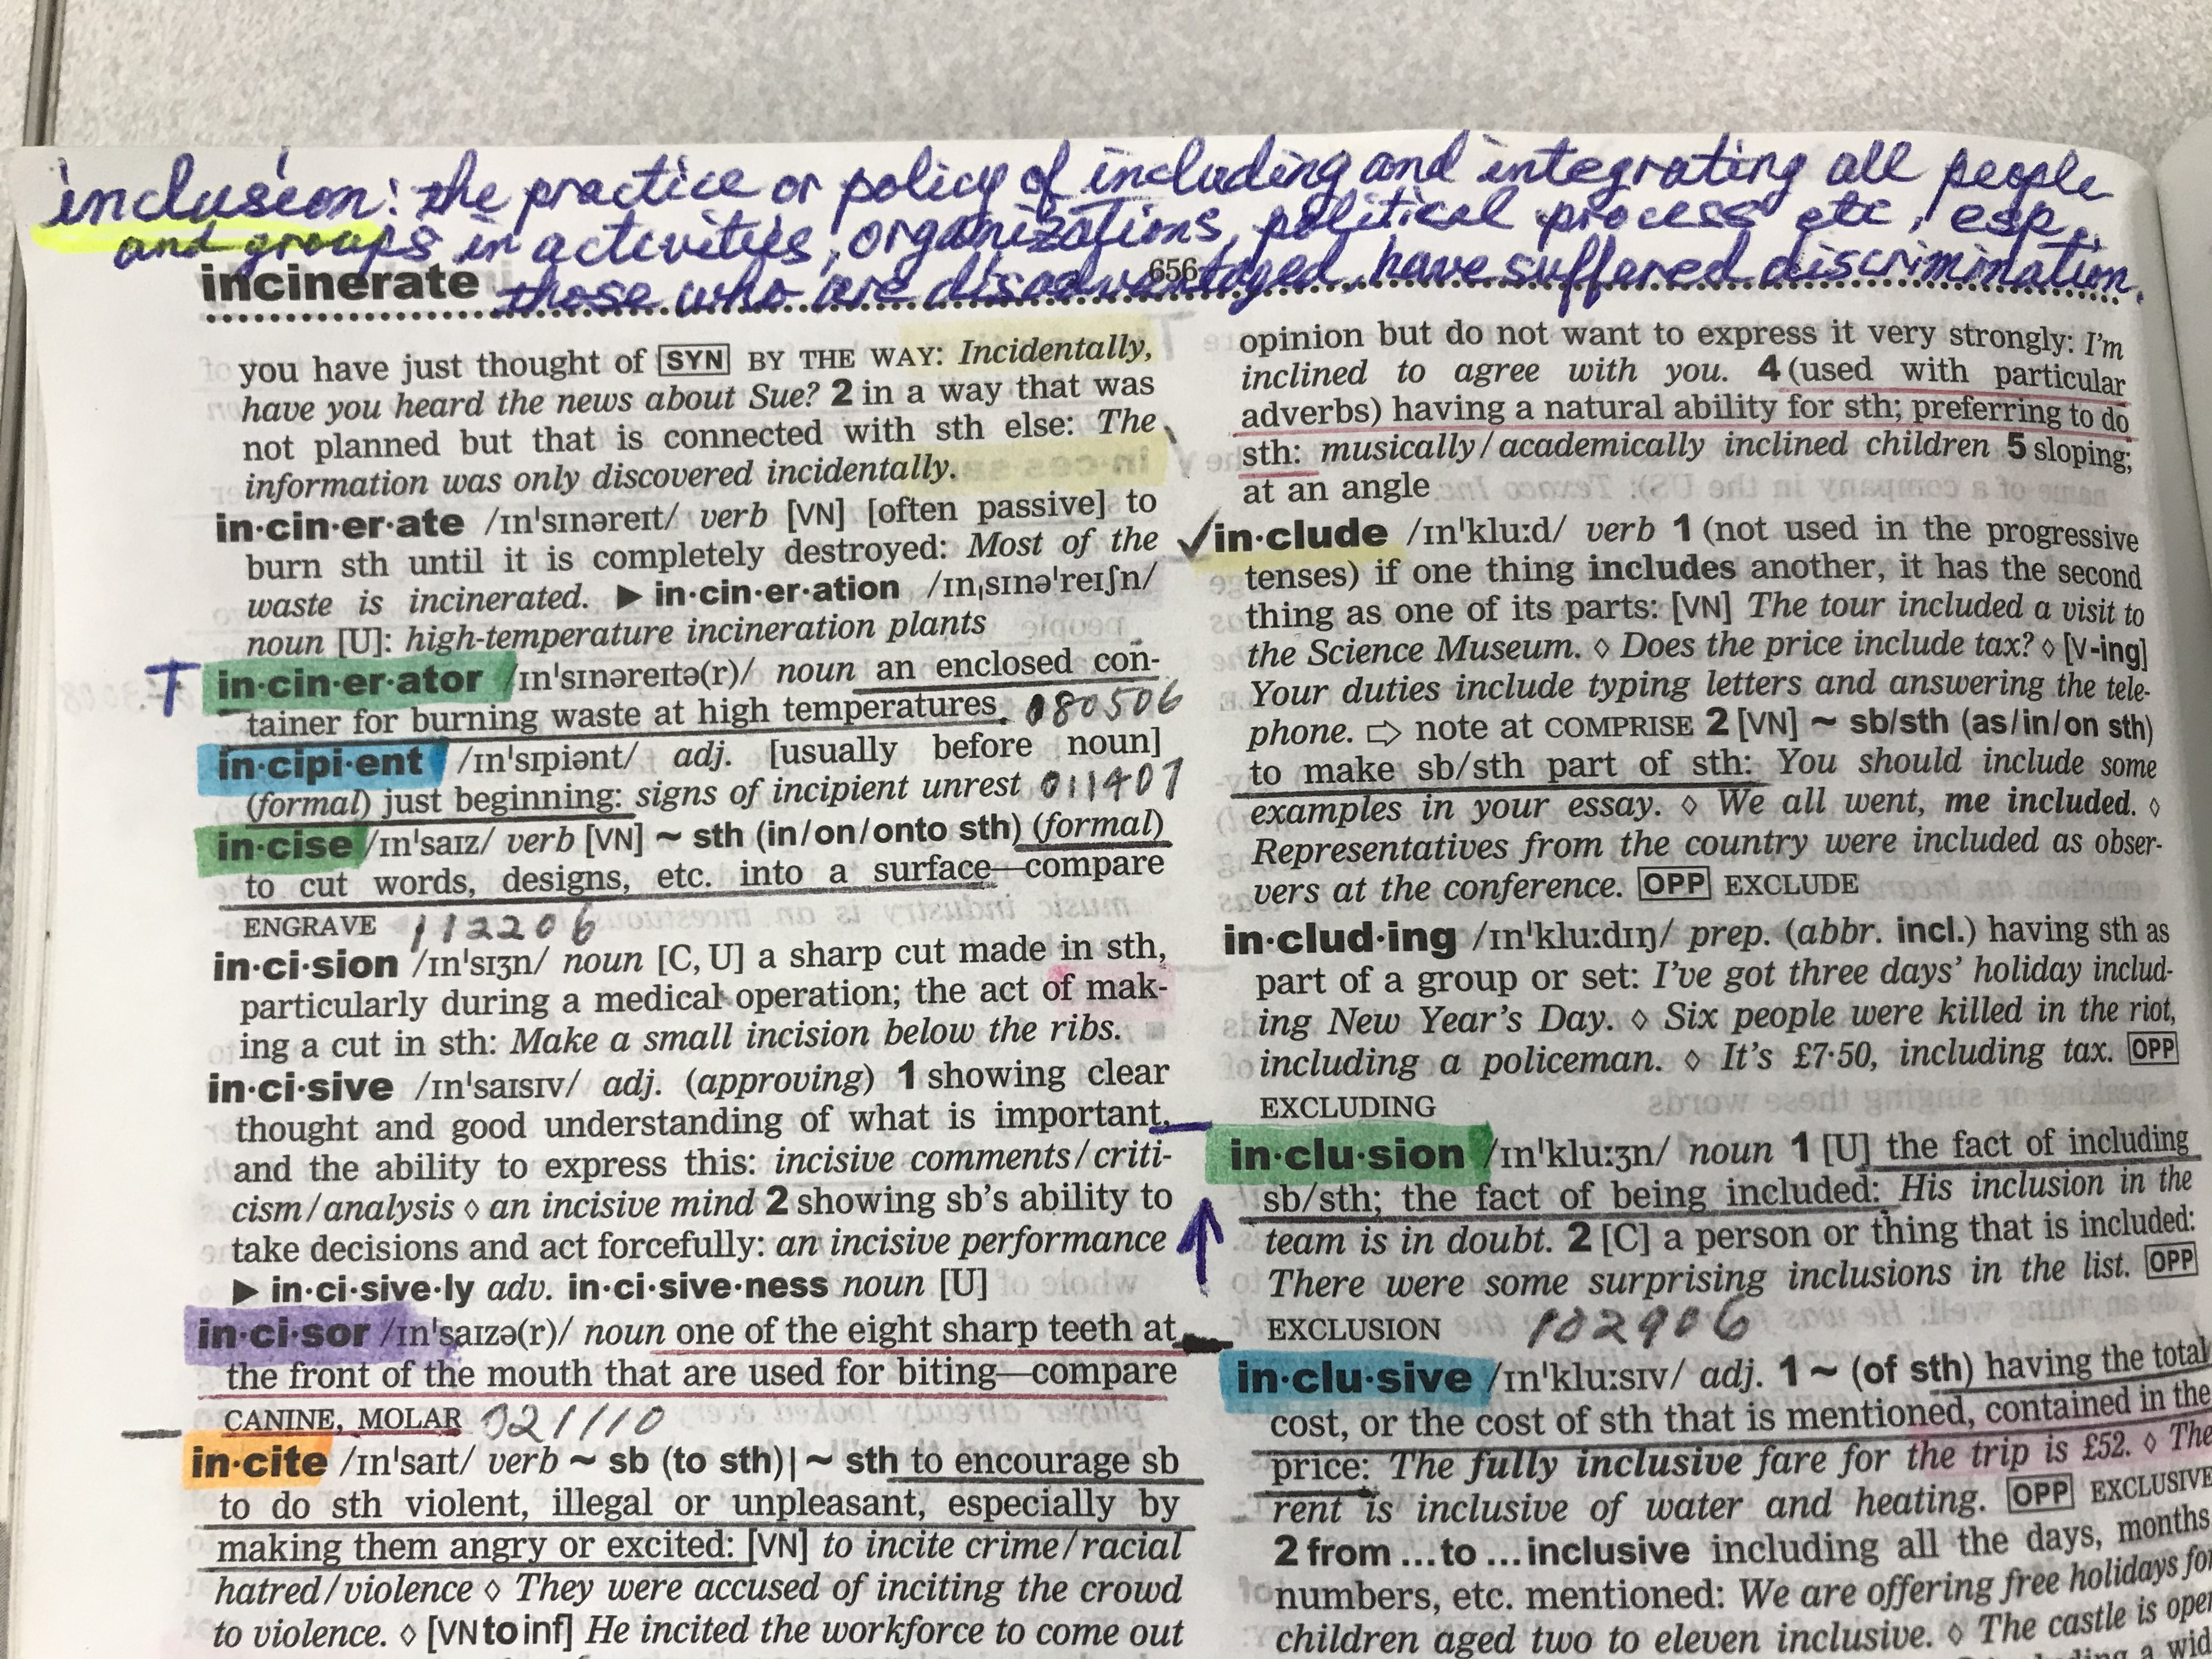 inclusion: the practice or policy of including and integrating all people
and groups in activities, organizations, political process etc, esp.
those who are disadvantaged, have suffered discrimination.
incinerate
656
you have just thought of SYN BY THE WAY: Incidentally,
have you heard the news about Sue? 2 in a way that was
not planned but that is connected with sth else: The
information was only discovered incidentally.
in·cin·er·ate /ɪnˈsɪnəreɪt/ verb [VN] [often passive] to
burn sth until it is completely destroyed: Most of the
waste is incinerated. ▶ in·cin·er·ation /ɪnˌsɪnəˈreɪʃn/
noun [U]: high-temperature incineration plants
T in·cin·er·ator /ɪnˈsɪnəreɪtə(r)/ noun an enclosed con-
tainer for burning waste at high temperatures. 080506
in·cipi·ent /ɪnˈsɪpiənt/ adj. [usually before noun]
(formal) just beginning: signs of incipient unrest 011407
in·cise /ɪnˈsaɪz/ verb [VN] ~ sth (in/on/onto sth) (formal)
to cut words, designs, etc. into a surface—compare
ENGRAVE 112206
in·ci·sion /ɪnˈsɪʒn/ noun [C, U] a sharp cut made in sth,
particularly during a medical operation; the act of mak-
ing a cut in sth: Make a small incision below the ribs.
in·ci·sive /ɪnˈsaɪsɪv/ adj. (approving) 1 showing clear
thought and good understanding of what is important,
and the ability to express this: incisive comments/criti-
cism/analysis ◊ an incisive mind 2 showing sb's ability to
take decisions and act forcefully: an incisive performance
▶ in·ci·sive·ly adv. in·ci·sive·ness noun [U]
in·ci·sor /ɪnˈsaɪzə(r)/ noun one of the eight sharp teeth at
the front of the mouth that are used for biting—compare
CANINE, MOLAR 021110
in·cite /ɪnˈsaɪt/ verb ~ sb (to sth)| ~ sth to encourage sb
to do sth violent, illegal or unpleasant, especially by
making them angry or excited: [VN] to incite crime/racial
hatred/violence ◊ They were accused of inciting the crowd
to violence. ◊ [VN to inf] He incited the workforce to come out
opinion but do not want to express it very strongly: I'm
inclined to agree with you. 4 (used with particular
adverbs) having a natural ability for sth; preferring to do
sth: musically/academically inclined children 5 sloping;
at an angle
✓in·clude /ɪnˈkluːd/ verb 1 (not used in the progressive
tenses) if one thing includes another, it has the second
thing as one of its parts: [VN] The tour included a visit to
the Science Museum. ◊ Does the price include tax? ◊ [V-ing]
Your duties include typing letters and answering the tele-
phone. ⇨ note at COMPRISE 2 [VN] ~ sb/sth (as/in/on sth)
to make sb/sth part of sth: You should include some
examples in your essay. ◊ We all went, me included. ◊
Representatives from the country were included as obser-
vers at the conference. OPP EXCLUDE
in·clud·ing /ɪnˈkluːdɪŋ/ prep. (abbr. incl.) having sth as
part of a group or set: I've got three days' holiday includ-
ing New Year's Day. ◊ Six people were killed in the riot,
including a policeman. ◊ It's £7·50, including tax. OPP
EXCLUDING
in·clu·sion /ɪnˈkluːʒn/ noun 1 [U] the fact of including
sb/sth; the fact of being included: His inclusion in the
team is in doubt. 2 [C] a person or thing that is included:
There were some surprising inclusions in the list. OPP
EXCLUSION 102906
in·clu·sive /ɪnˈkluːsɪv/ adj. 1 ~ (of sth) having the total
cost, or the cost of sth that is mentioned, contained in the
price: The fully inclusive fare for the trip is £52. ◊ The
rent is inclusive of water and heating. OPP EXCLUSIVE
2 from ... to ... inclusive including all the days, months,
numbers, etc. mentioned: We are offering free holidays for
children aged two to eleven inclusive. ◊ The castle is open